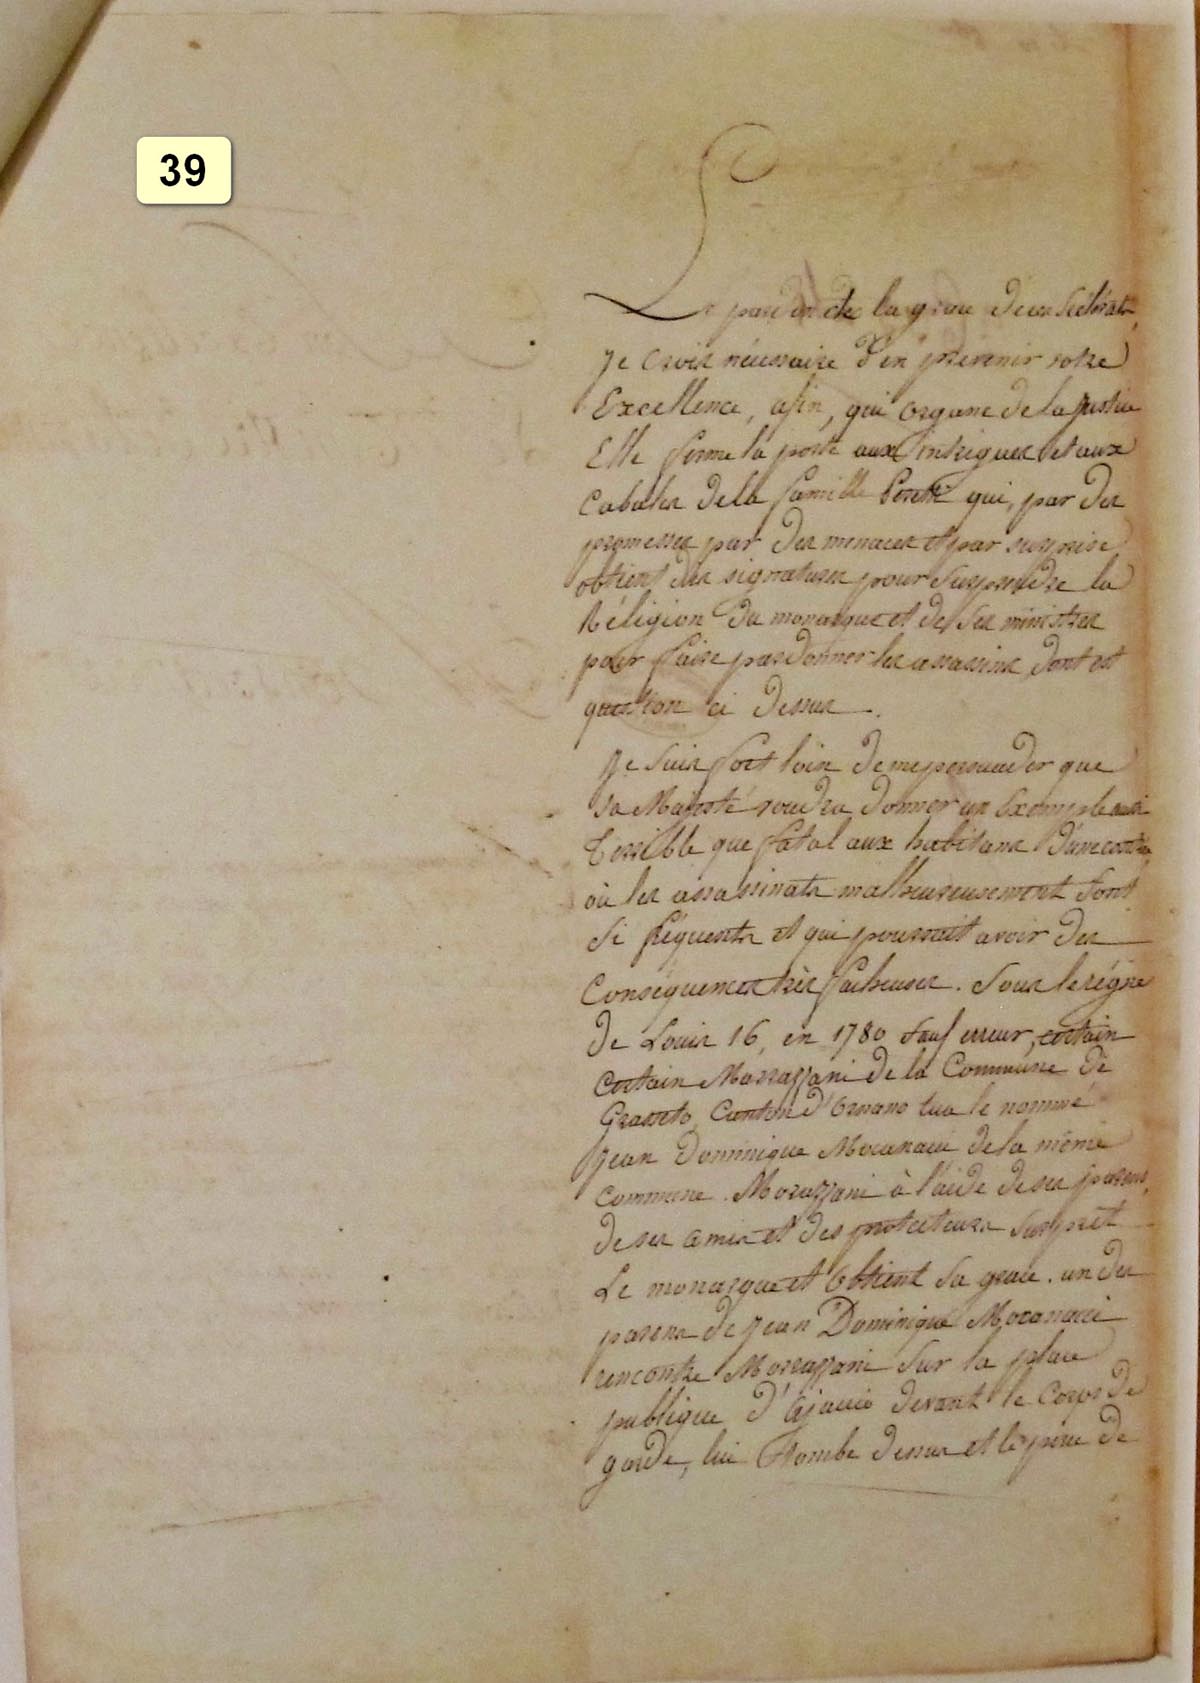 39
Le pardon de la grace de ces Scélérats,
je crois nécessaire d'en prévenir votre
Excellence, afin, qui organe de la justice
Elle ferme la porte aux intrigues et aux
Cabales de la famille qui, par des
promesses par des menaces et par surprise
obtient des signatures pour surprendre la
Réligion du monarque et de ses ministres
pour faire pardonner les assassins dont est
question ci dessus.
Je suis fort loin de me persuader que
sa Majesté voudra donner un Exemple aussi
terrible que fatal aux habitans d'une contrée
où les assassinats malheureusement sont
si fréquents et qui pourrait avoir des
Conséquences très facheuses. Sous le régne
de Louis 16, en 1780 sauf erreur, certain
certain Morazzani de la Commune de
Grosseto, Canton d'Ornano tua le nommé
Jean Dominique de la même
commune. Morazzani à l'aide de ses parens,
de ses amis et des protecteurs surprit
Le monarque et obtient sa grace. un des
parens de Jean Dominique
rencontre Morazzani sur la place
publique d'Ajaccio devant le Corps de
garde, lui tombe dessus et le perce de